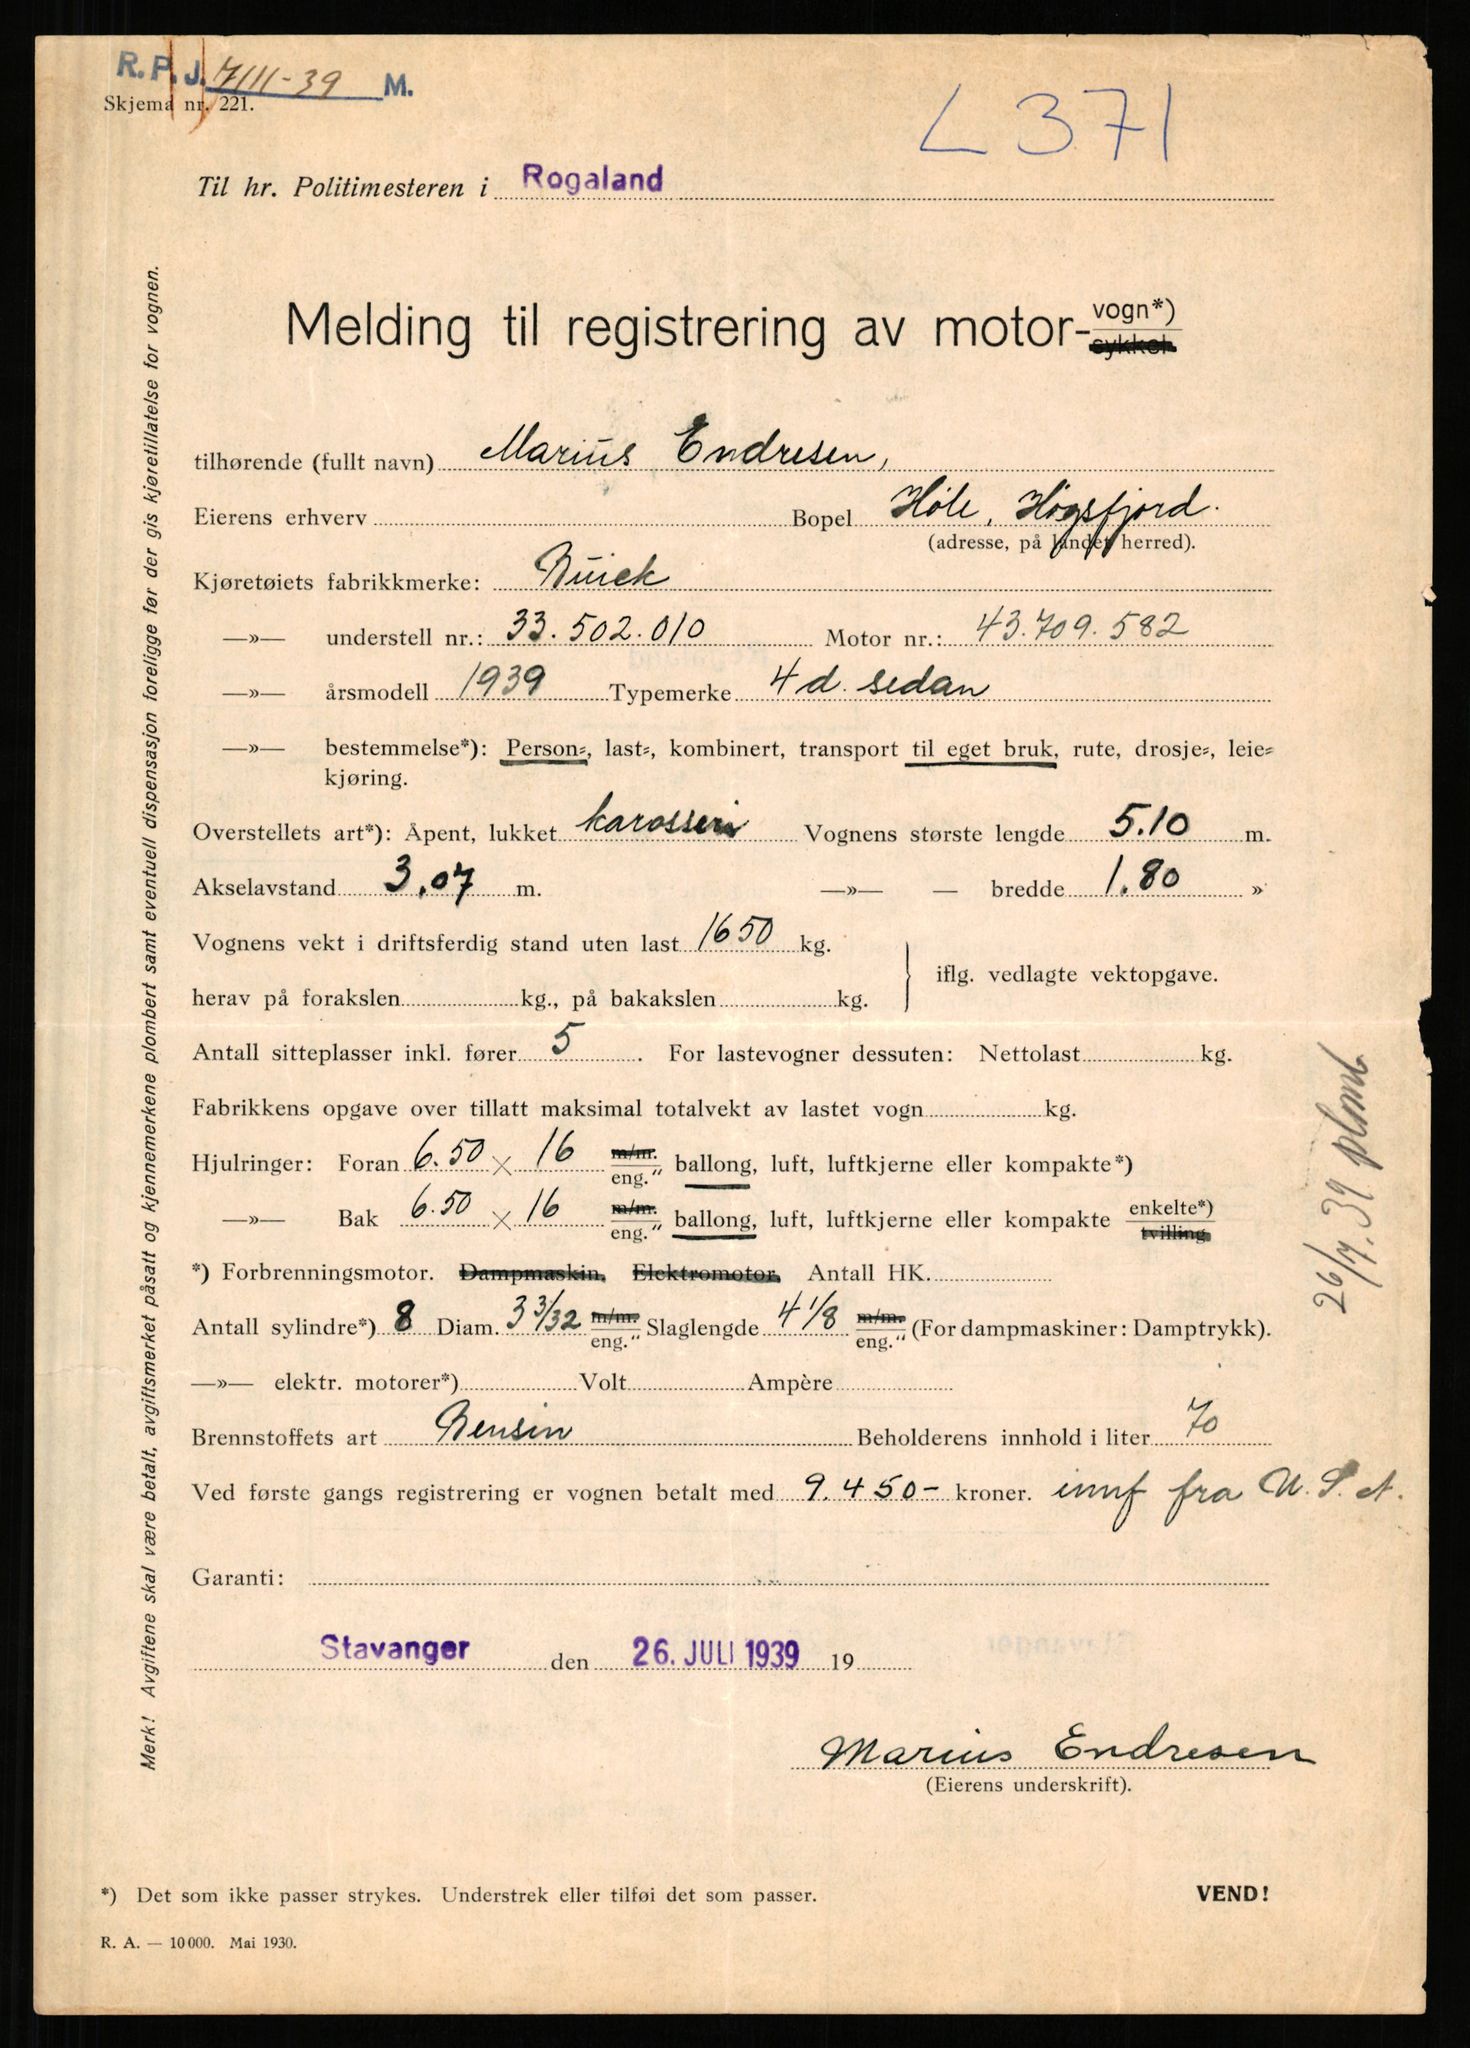 R. P. J. 7111-39 M.
Skjema nr. 221.
L 371
Til hr. Politimesteren i Rogaland
Melding til registrering av motor-vogn*)
sykkel
tilhørende (fullt navn) Marius Endresen,
Eierens erhverv Bopel Höle, Högsfjord.
(adresse, på landet herred).
Kjøretøiets fabrikkmerke: Buick
—»— understell nr.: 33.502.010 Motor nr.: 43.709.582
—»— årsmodell 1939 Typemerke 4 d. sedan
—»— bestemmelse*): Person-, last-, kombinert, transport til eget bruk, rute, drosje-, leie-
kjøring.
Overstellets art*): Åpent, lukket karosseri Vognens største lengde 5.10 m.
Akselavstand 3,07 m. —»— — bredde 1.80 »
Vognens vekt i driftsferdig stand uten last 1650 kg.
iflg. vedlagte vektopgave.
herav på forakslen kg., på bakakslen kg.
Antall sitteplasser inkl. fører 5. For lastevogner dessuten: Nettolast kg.
Fabrikkens opgave over tillatt maksimal totalvekt av lastet vogn kg.
Hjulringer: Foran 6.50 × 16 m/m. eng." ballong, luft, luftkjerne eller kompakte*)
—»— Bak 6.50 × 16 m/m. eng." ballong, luft, luftkjerne eller kompakte enkelte*) tvilling
*) Forbrenningsmotor. Dampmaskin. Elektromotor. Antall HK.
Antall sylindre*) 8 Diam. 3 3/32 m/m. eng." Slaglengde 4 1/8 m/m. eng." (For dampmaskiner: Damptrykk).
—»— elektr. motorer*) Volt Ampère
Brennstoffets art Bensin Beholderens innhold i liter 70
Ved første gangs registrering er vognen betalt med 9.450- kroner. innf fra U.S.A.
Garanti:
Stavanger den 26. JULI 1939 19
Marius Endresen
(Eierens underskrift).
*) Det som ikke passer strykes. Understrek eller tilføi det som passer.
VEND!
R. A. — 10 000. Mai 1930.
Merk! Avgiftene skal være betalt, avgiftsmerket påsatt og kjennemerkene plombert samt eventuell dispensasjon foreligge før der gis kjøretillatelse for vognen.
26/7.39 plomb